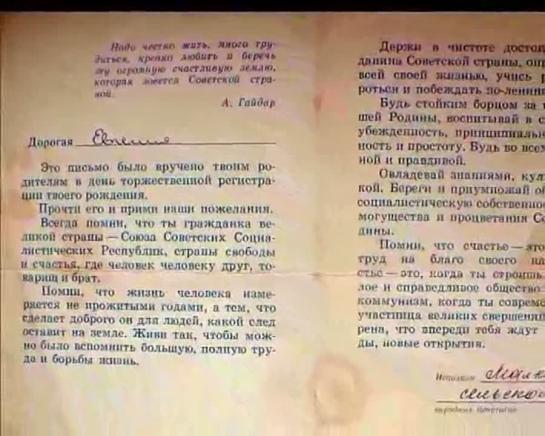 Надо честно жить, много тру-
диться, крепко любить и беречь
эту огромную счастливую землю,
которая зовется Советской стра-
ной.
А. Гайдар
Дорогая Евгения
Это письмо было вручено твоим ро-
дителям в день торжественной регистра-
ции твоего рождения.
Прочти его и прими наши пожелания.
Всегда помни, что ты гражданка ве-
ликой страны — Союза Советских Социа-
листических Республик, страны свободы
и счастья, где человек человеку друг, то-
варищ и брат.
Помни, что жизнь человека изме-
ряется не прожитыми годами, а тем, что
сделает доброго он для людей, какой след
оставит на земле. Живи так, чтобы мож-
но было вспомнить большую, полную тру-
да и борьбы жизнь.
Держи в чистоте достои
данина Советской страны, опр
всей своей жизнью, учись р
роться и побеждать по-ленин
Будь стойким борцом за
шей Родины, воспитывай в с
убежденность, принципиальн
ность и простоту. Будь во все
ной и правдивой.
Овладевай знаниями, кул
кой. Береги и приумножай об
социалистическую собственнос
могущества и процветания Со
дины.
Помни, что счастье — это
труд на благо своего на
стье — это, когда ты строишь
лое и справедливое общество
коммунизм, когда ты совреме
участница великих свершений
рена, что впереди тебя ждут
ды, новые открытия.
Исполком
сельско
народных депутатов